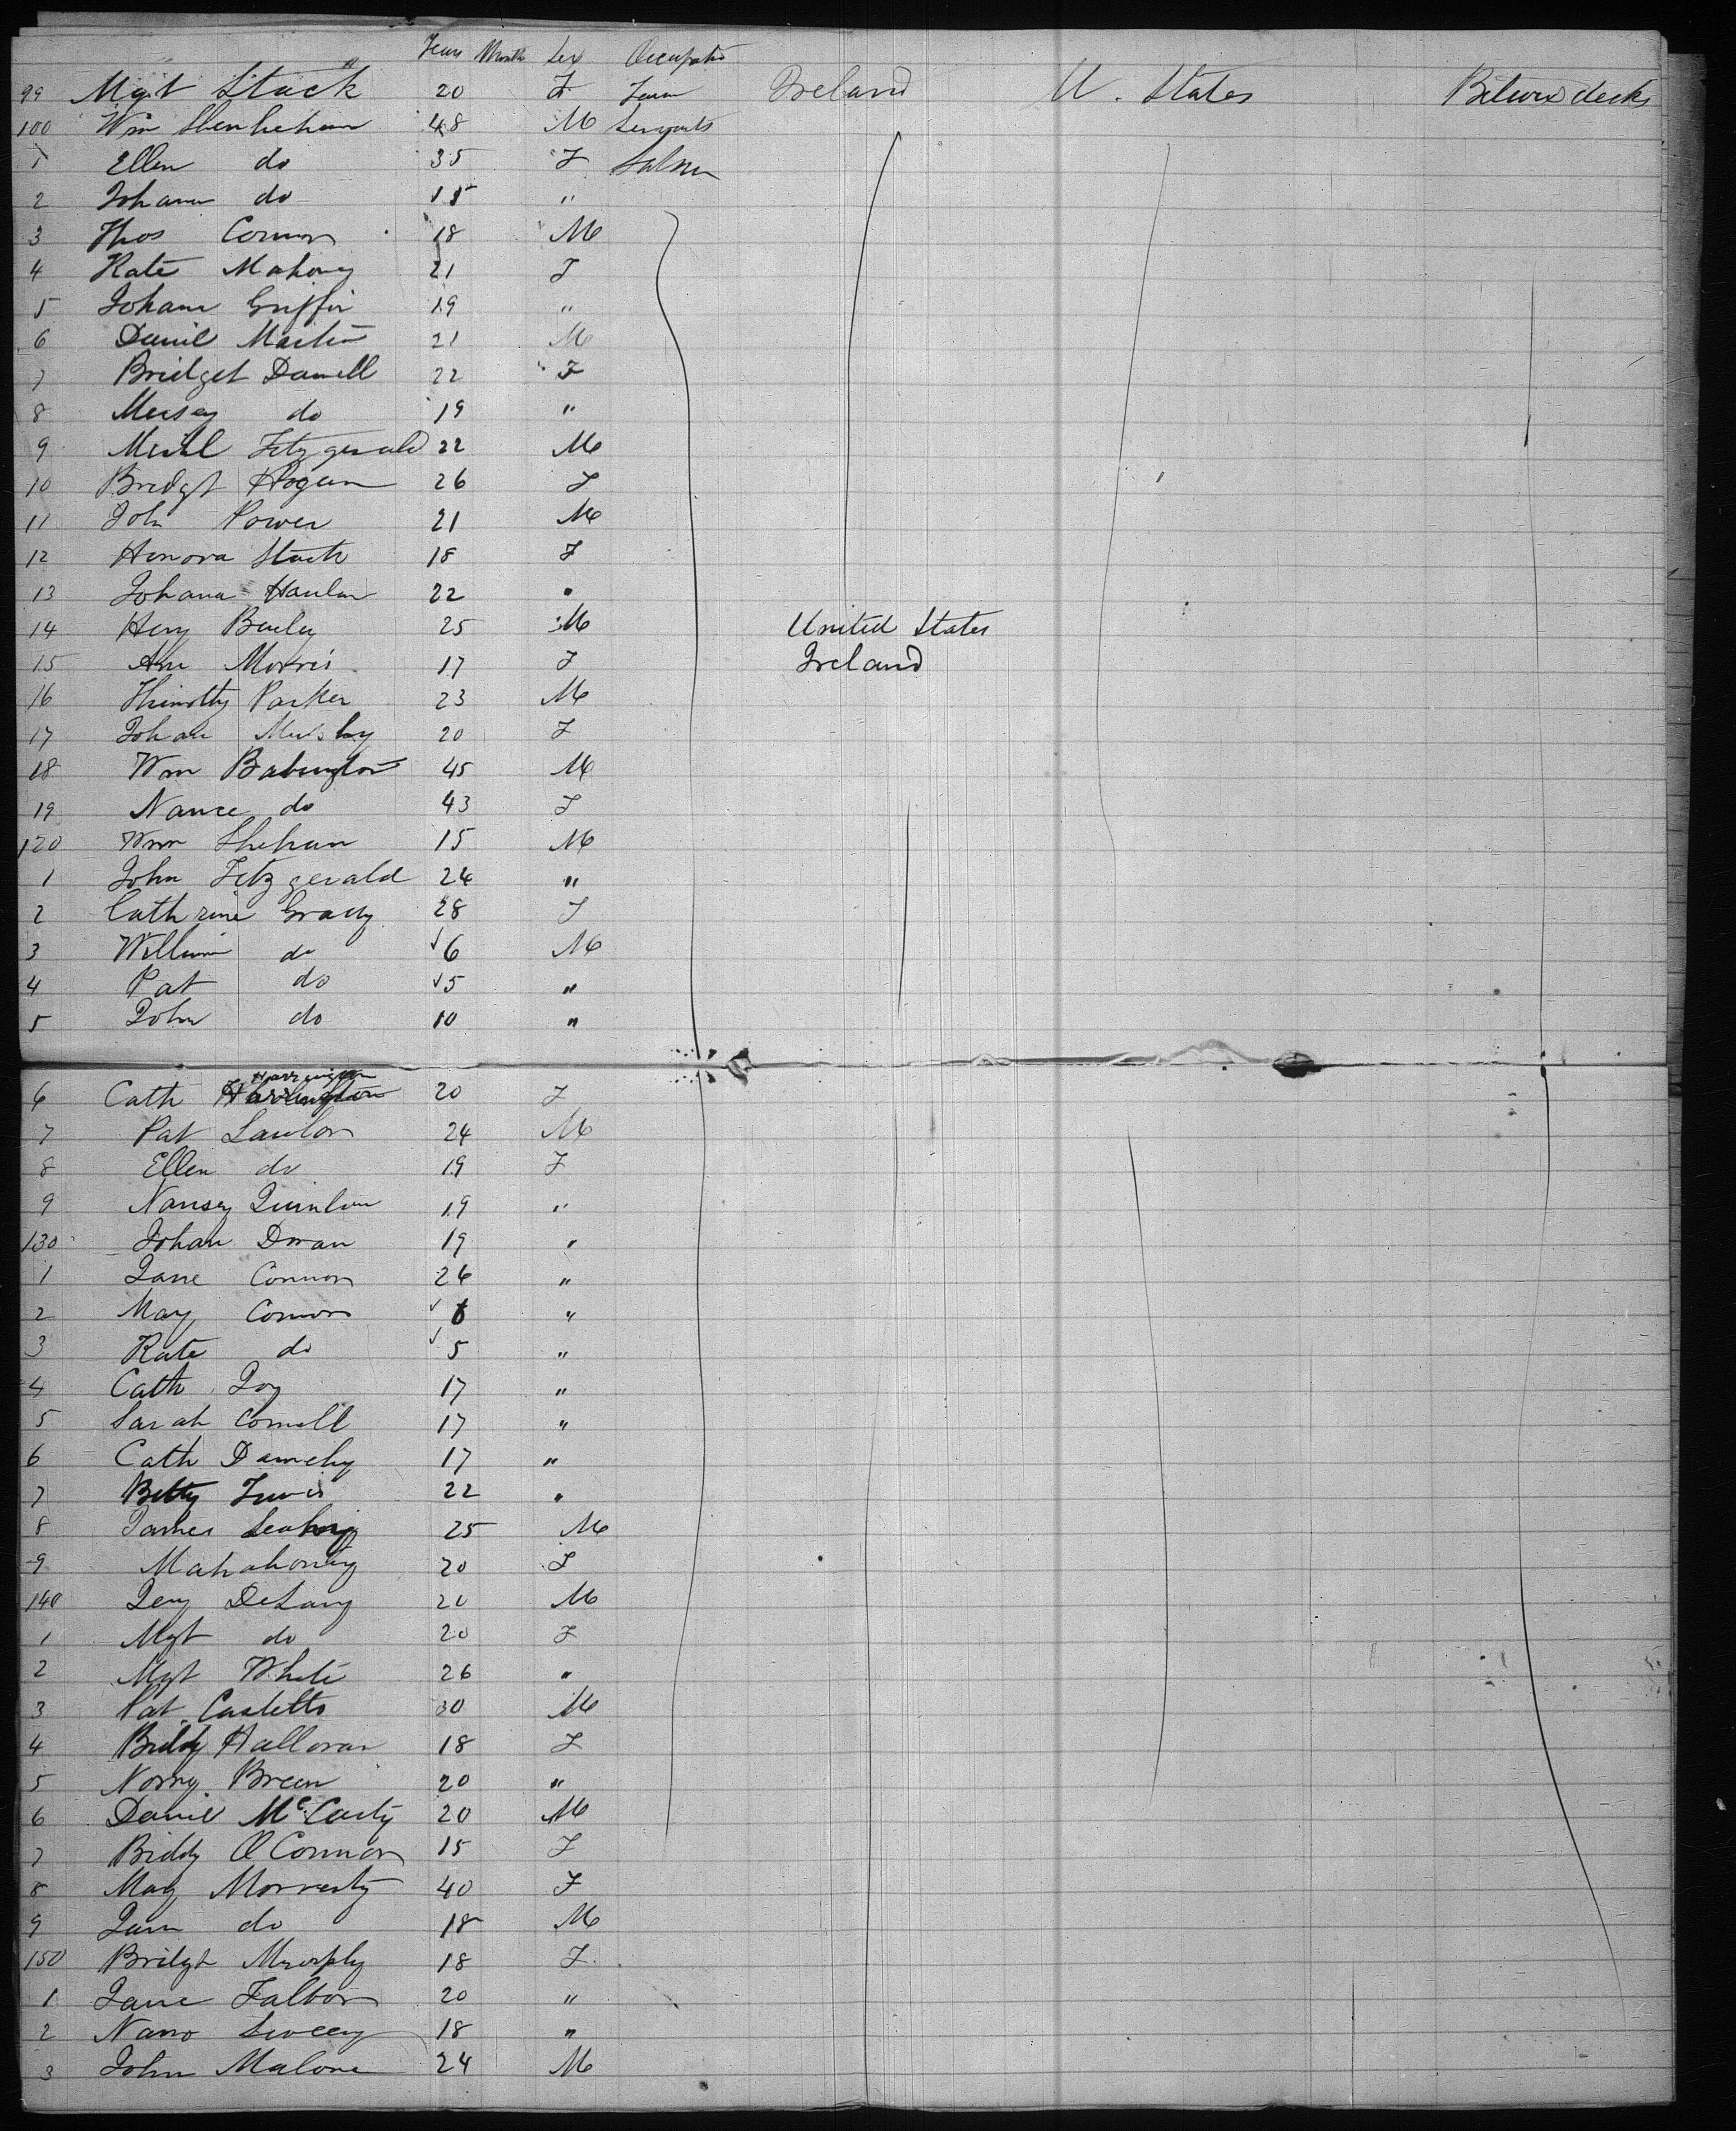 Years Month Sex Occupatio
99 Mgt Stack 20 F Farm Ireland U. States Between decks
100 Wm 48 M Servants
1 Ellen do 35 F
2 Johana do 15 "
3 Thos Connor 18 M
4 Kate Mahony 21 F
5 Johana Griffin 19 "
6 Daniel Martin 21 M
7 Bridget Dannell 22 F
8 do 19 "
9 Michl Fitzgerald 22 M
10 Bredgt Hogan 26 F
11 John Power 21 M
12 Honora Stack 18 F
13 Johana Hanlon 22 "
14 Heny 25 M United States
15 Ann Morris 17 F Ireland
16 Thimothy Parker 23 M
17 Johan 20 F
18 Wm Babington 45 M
19 Nance do 43 F
120 Wm Shehan 15 M
1 John Fitzgerald 24 "
2 Cathrine Grady 28 F
3 William do 6 M
4 Pat do 5 "
5 John do 10 "
Harrington
6 Cath Harrington 20 F
7 Pat Lawlor 24 M
8 Ellen do 19 F
9 Nansey Quinlan 19 "
130 Johan Doran 19 "
1 Jane Connors 26 "
2 May Connors 6 "
3 Kate do 5 "
4 Cath Joy 17 "
5 Sarah Connell 17 "
6 Cath 17 "
7 Betty 22 "
8 James Leahy 25 M
9 20 F
140 Jery DeLany 20 M
1 Mgt do 20 F
2 Mgt White 26 "
3 Pat Castello 30 M
4 Biddy Halloran 18 F
5 Norry Breen 20 "
6 Daniel McCarty 20 M
7 Biddy O Connor 15 F
8 May 40 F
9 do 18 M
150 Bridgt Murphy 18 F
1 Jane 20 "
2 Nano 18 "
3 John Malone 24 M